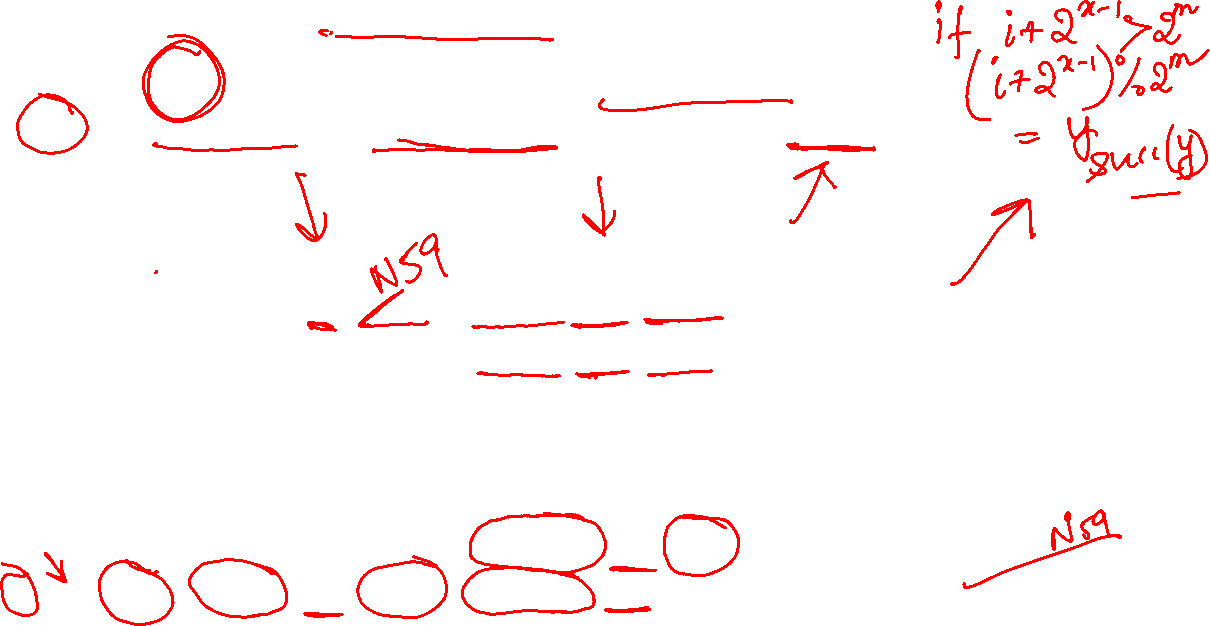 if i+2^{x-1} > 2^m
(i+2^{x-1}) % 2^m
= y
succ(y)
N59
N59